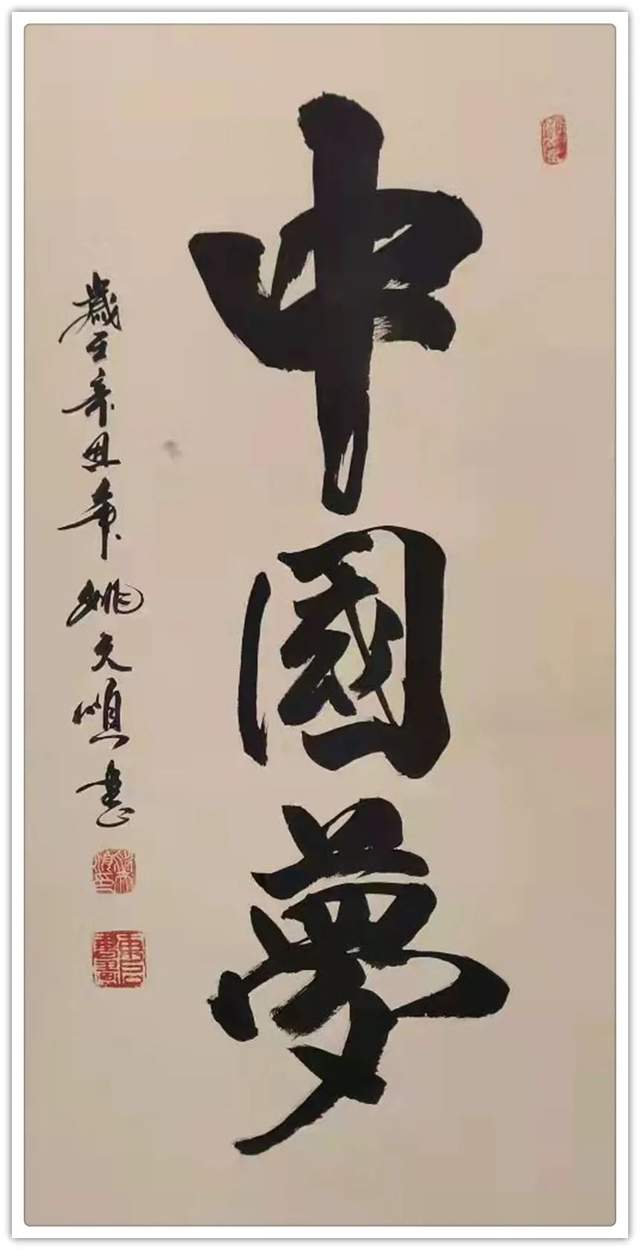 中國夢
歲在辛丑年姚文順書